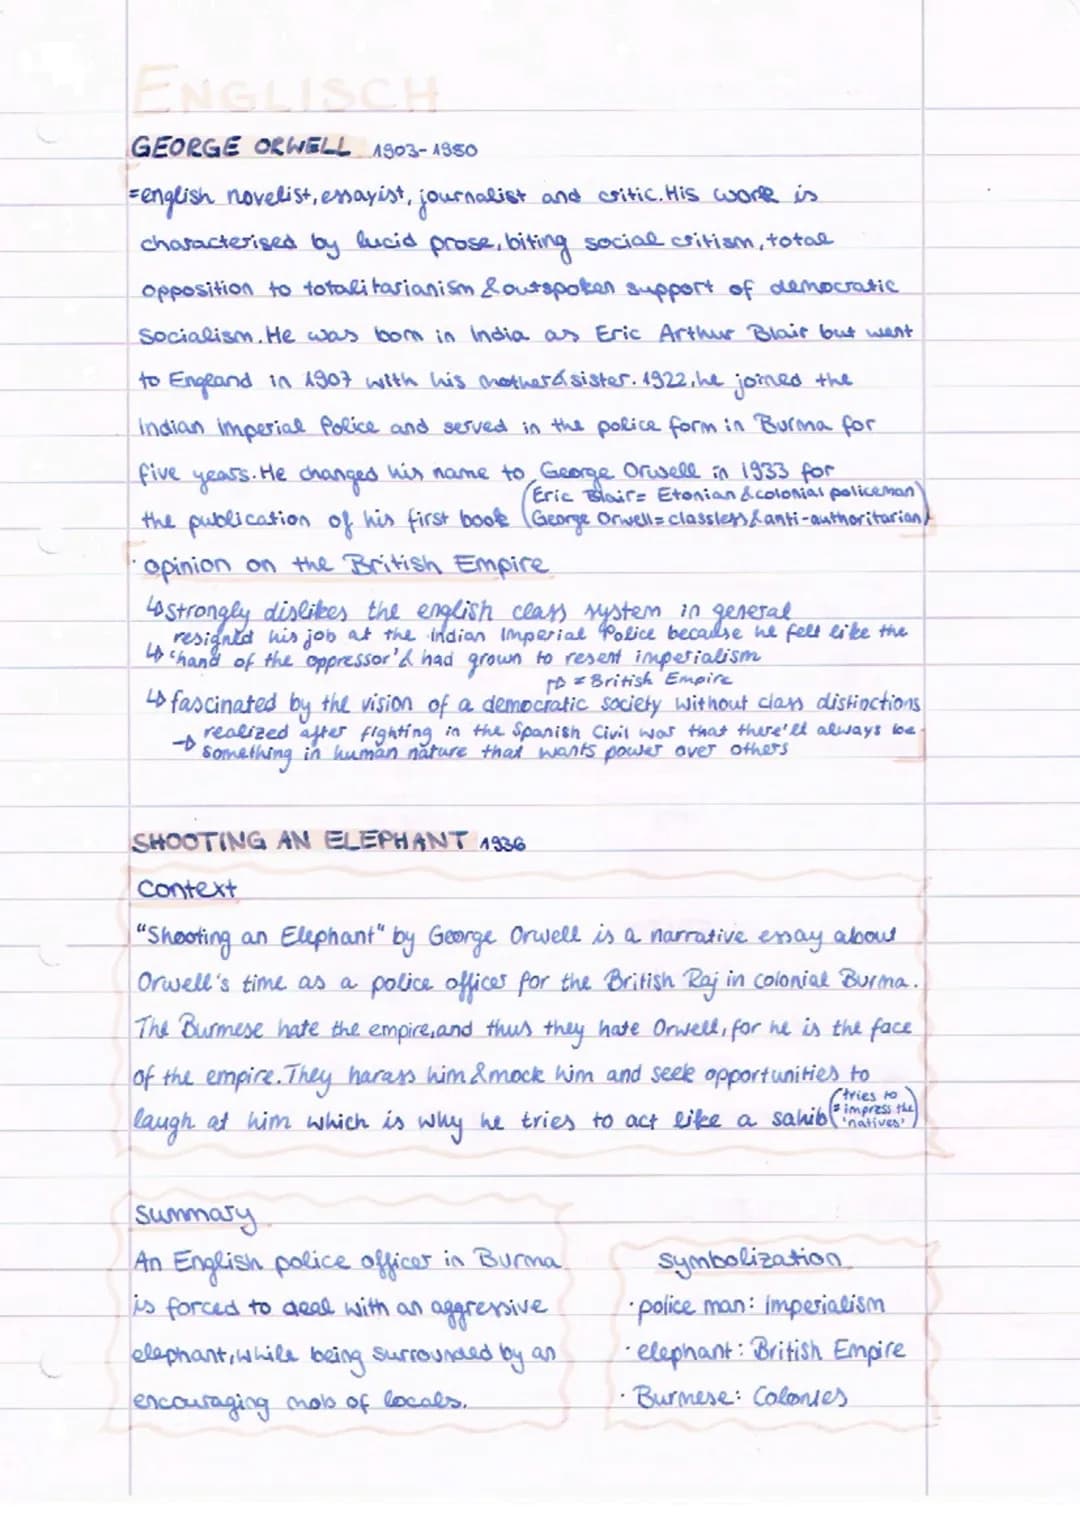 ENGLISCH
GEORGE ORWELL 1903-1950
=english novelist, essayist, journalist and critic. His work is
characterised by lucid prose, biting social critism, total
opposition to totalitarianism & outspoken support of democratic
Socialism. He was born in India as Eric Arthur Blair but went
to England in 1907 with his mother & sister. 1922, he joined the
Indian Imperial Police and served in the police form in Burma for
five years. He changed his name to George Orwell in 1933 for
the publication of his first book (Eric Blair= Etonian & colonial policeman
George Orwell= classless & anti-authoritarian)
· opinion on the British Empire
↳ strongly dislikes the english class system in general
↳ resigned his job at the Indian Imperial Police because he felt like the
'hand of the oppressor' & had grown to resent imperialism
↳ = British Empire
↳ fascinated by the vision of a democratic society without class distinctions
→ realized after fighting in the Spanish Civil war that there'll always be
something in human nature that wants power over others
SHOOTING AN ELEPHANT 1936
Context
"Shooting an Elephant" by George Orwell is a narrative essay about
Orwell's time as a police officer for the British Raj in colonial Burma.
The Burmese hate the empire, and thus they hate Orwell, for he is the face
of the empire. They harass him & mock him and seek opportunities to
laugh at him which is why he tries to act like a sahib (= tries to
impress the
'natives')
Summary
An English police officer in Burma
is forced to deal with an aggressive
elephant, while being surrounded by an
encouraging mob of locals.
symbolization
· police man: Imperialism
· elephant: British Empire
· Burmese: Colonies